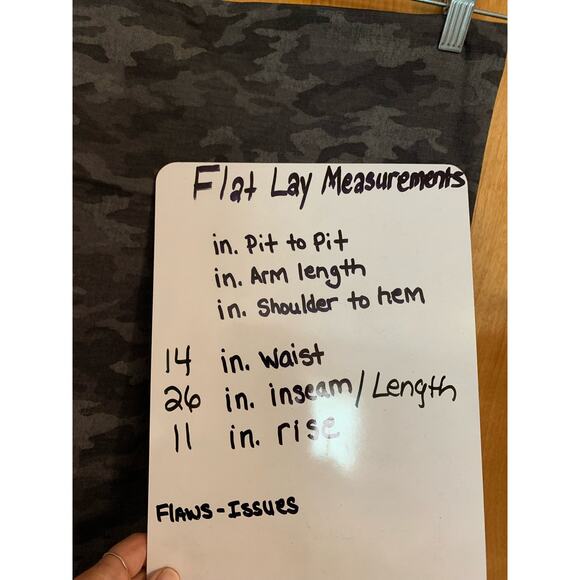 Flat Lay Measurements
in. Pit to Pit
in. Arm length
in. Shoulder to hem
14 in. Waist
26 in. inseam/Length
11 in. rise
Flaws-Issues